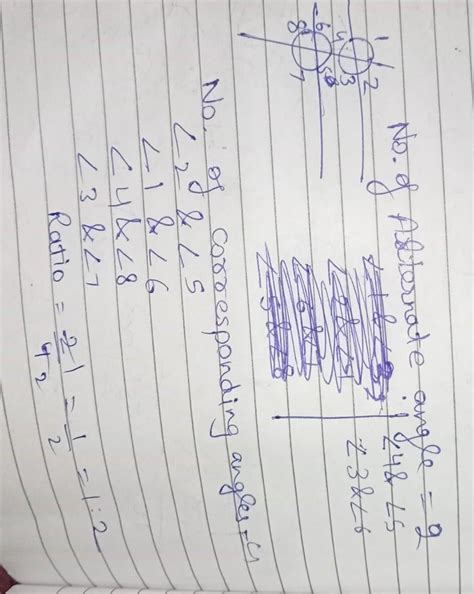 1 2
4 3
6 5
8 7
No. of Alternate angle = 2
∠4 & ∠5
∠3 & ∠6
No. of Corresponding angles = 4
∠2 & ∠5
∠1 & ∠6
∠4 & ∠8
∠3 & ∠7
Ratio = 2 1 / 4 2 = 1/2 = 1:2